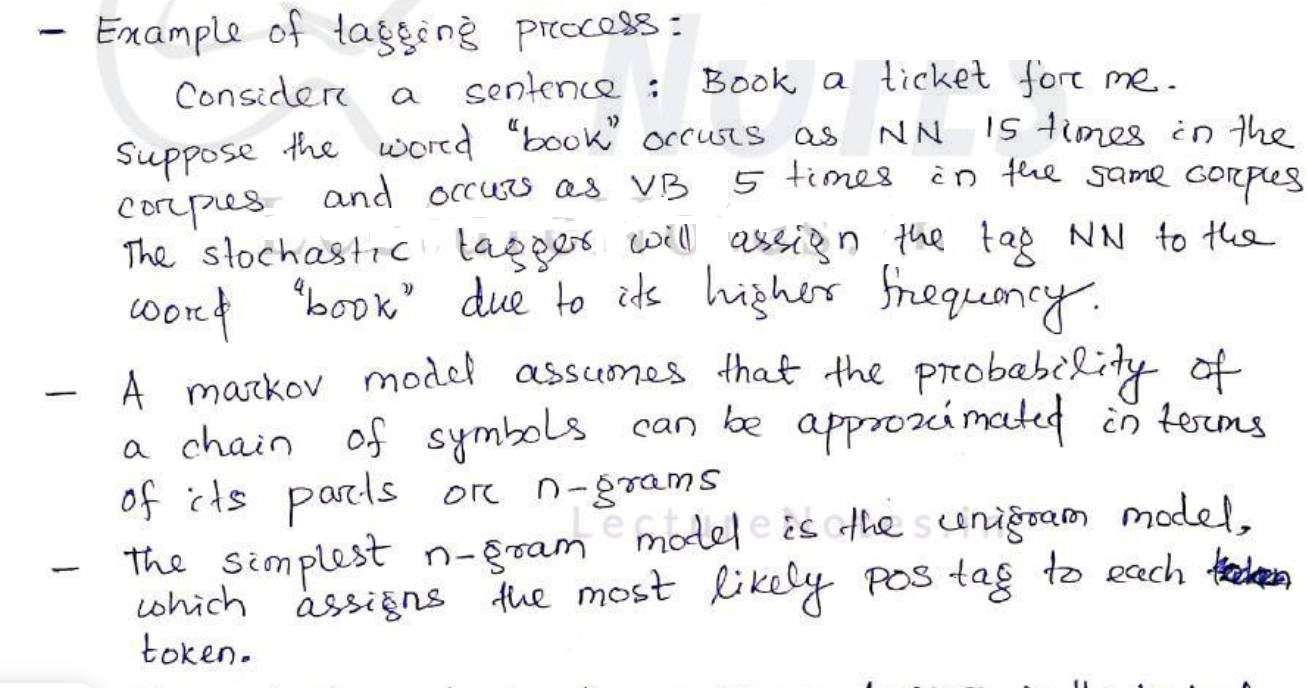 - Example of tagging process:
Consider a sentence : Book a ticket for me.
Suppose the word "book" occurs as NN 15 times in the
corpus and occurs as VB 5 times in the same corpus
The stochastic tagger will assign the tag NN to the
word "book" due to its higher frequency.
- A markov model assumes that the probability of
a chain of symbols can be approximated in terms
of its parts or n-grams
- The simplest n-gram model is the unigram model,
which assigns the most likely POS tag to each token
token.